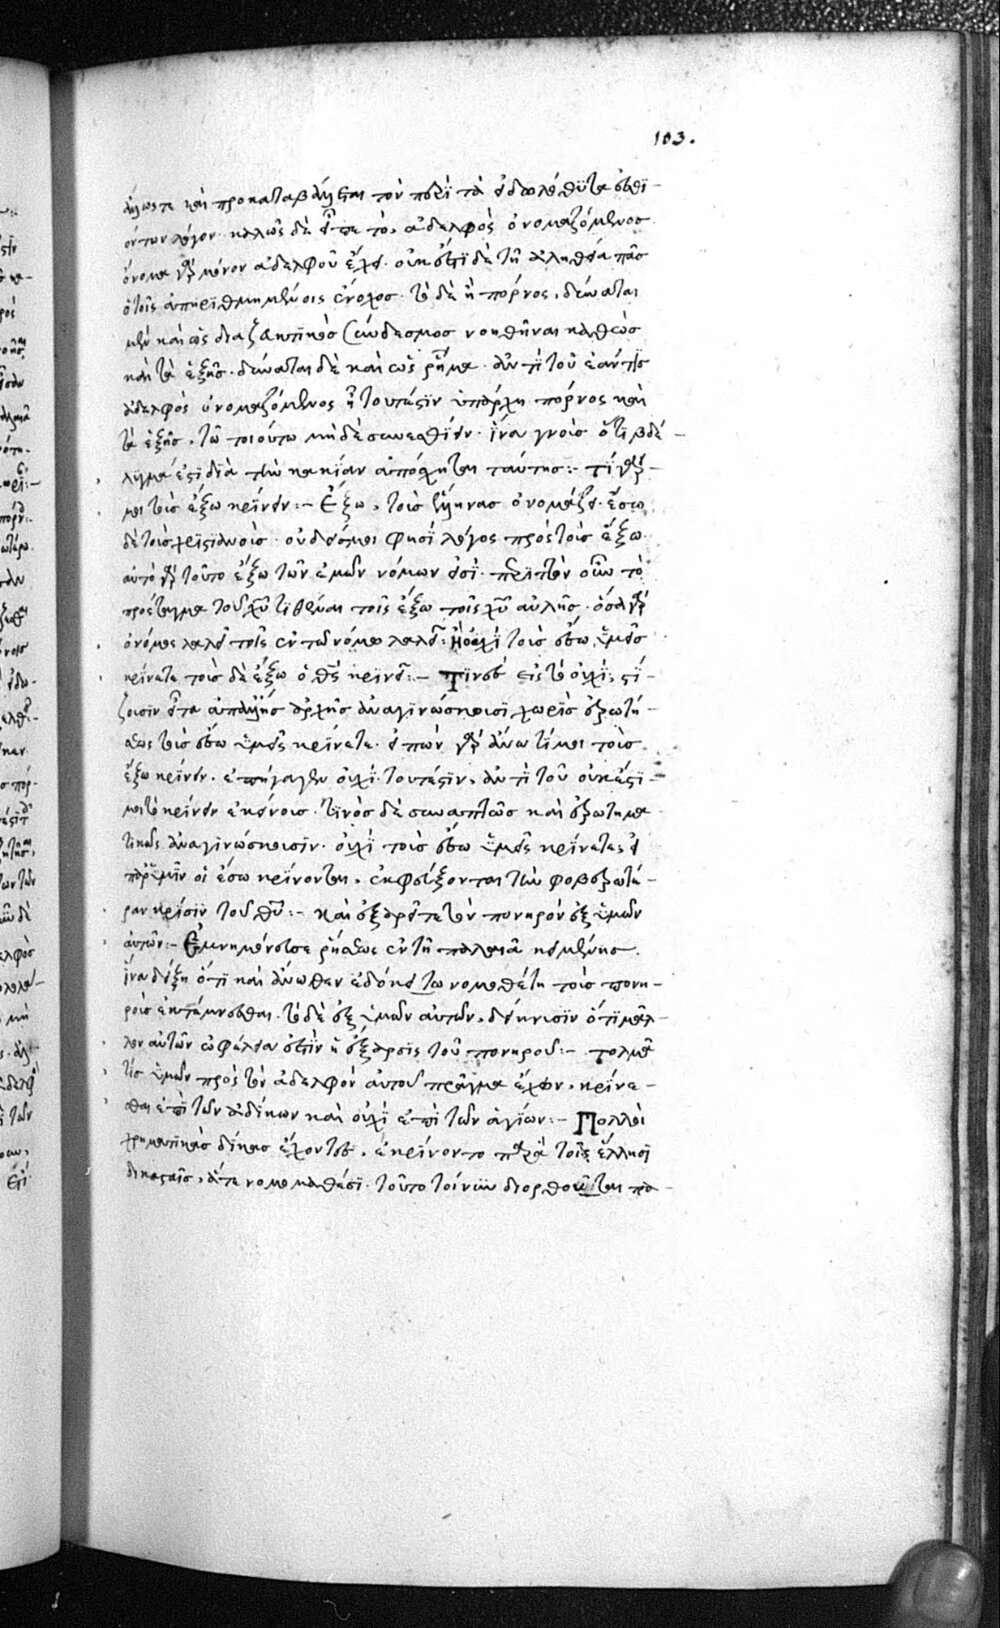 103.
ἄλλως τε καὶ προκαταβάλλεται τὸν περὶ τὰ εἰδωλόθυτα ἐσθι-
όντων λόγον. καλῶς δὲ εἶπε τὸ, ἀδελφὸς ὀνομαζόμενος.
ὄνομα γὰρ μόνον ἀδελφοῦ ἔχει. οὐκ ἔστι δὲ τῇ ἀληθεία πᾶσ
ὁ τοῖς ἀπηριθμημένοις ἔνοχος. τὸ δὲ ἢ πόρνος, δύναται
μὲν καὶ ὡς διαζευκτικὸς σύνδεσμος νοηθῆναι καθὼς
καὶ τὰ ἑξῆς. δύναται δὲ καὶ ὡς ῥῆμα. ἀντὶ τοῦ ἐάν τις
ἀδελφὸς ὀνομαζόμενος ἦ τουτέστιν ὑπάρχη πόρνος καὶ
τὰ ἑξῆς. τῶ τοιούτω μηδὲ συνεσθίειν. ἵνα γνοὺς ὅτι βδέ-
λυγμά ἐστι διὰ τὴν κακίαν ἀπόσχηται ταύτης:- τί γάρ
μοι τοὺς ἔξω κρίνειν:- Ἔξω, τοὺς ἕλληνας ὀνομάζει. ἔσω
δὲ τοὺς χριστιανούς. οὐδείς μοι φησί λόγος πρὸς τοὺς ἔξω.
αὐτὸ γὰρ τοῦτο ἔξω τῶν ἐμῶν νόμων εἰσί. περιττὸν οὖν τὸ
πρόσταγμα τοῦ χυ τιθέναι τοῖς ἔξω τοῖς χυ αὐλῆς. ὅσα γὰρ
ὁ νόμος λαλεῖ τοῖς ἐν τῶ νόμω λαλεῖ: Ἢ οὐχὶ τοὺς ἔσω ὑμεῖς
κρίνατε τοὺς δὲ ἔξω ὁ θς κρινεῖ:- Τινὲς εἰς τὸ οὐχὶ, στί-
ζουσιν εἶτα ἀπ' ἄλλης ἀρχῆς ἀναγινώσκουσι χωρὶς ἐρωτή-
σεως τοὺς ἔσω ὑμεῖς κρίνατε. εἰπὼν γὰρ ἄνω τί μοι τοὺς
ἔξω κρίνειν. ἐπήγαγεν οὐχί. τουτέστιν, ἀντὶ τοῦ οὐκ ἔστι
μοι τὸ κρίνειν ἐκείνους. τινὲς δὲ συναπτῶς καὶ ἐρωτημα
τικῶς ἀναγινώσκουσιν. οὐχὶ τοὺς ἔσω ὑμεῖς κρίνατε, εἰ
παρ' ὑμῖν οἱ ἔσω κρίνονται, ἐκφεύξονται τὴν φοβερωτέ-
ραν κρίσιν τοῦ θυ:- καὶ ἐξαρεῖτε τὸν πονηρὸν ἐξ ὑμῶν
αὐτῶν:- Ἐμνημόνευσε ῥήσεως ἐν τῆ παλαιᾶ κειμένης.
ἵνα δείξη ὅτι καὶ ἄνωθεν ἐδόκει τῶ νομοθέτη τοὺς πονη-
ροὺς ἐκτέμνεσθαι. τὸ δὲ ἐξ ὑμῶν αὐτῶν, δείκνυσιν ὅτι μᾶλ-
λον αὐτῶν ὠφέλεια ἐστὶν ἡ ἔξαρσις τοῦ πονηροῦ:- τολμᾶ
τίς ὑμῶν πρὸς τὸν ἀδελφὸν αὐτοῦ πρᾶγμα ἔχων, κρίνε-
σθαι ἐπὶ τῶν ἀδίκων καὶ οὐχὶ ἐπὶ τῶν ἁγίων:- Πολλοὶ
χρηματικὰς δίκας ἔχοντες, ἐκρίνοντο παρὰ τοῖς ἕλλησι
δικασταῖς, ἅτε νομομαθέσι. τοῦτο τοίνυν διορθοῦται πα-